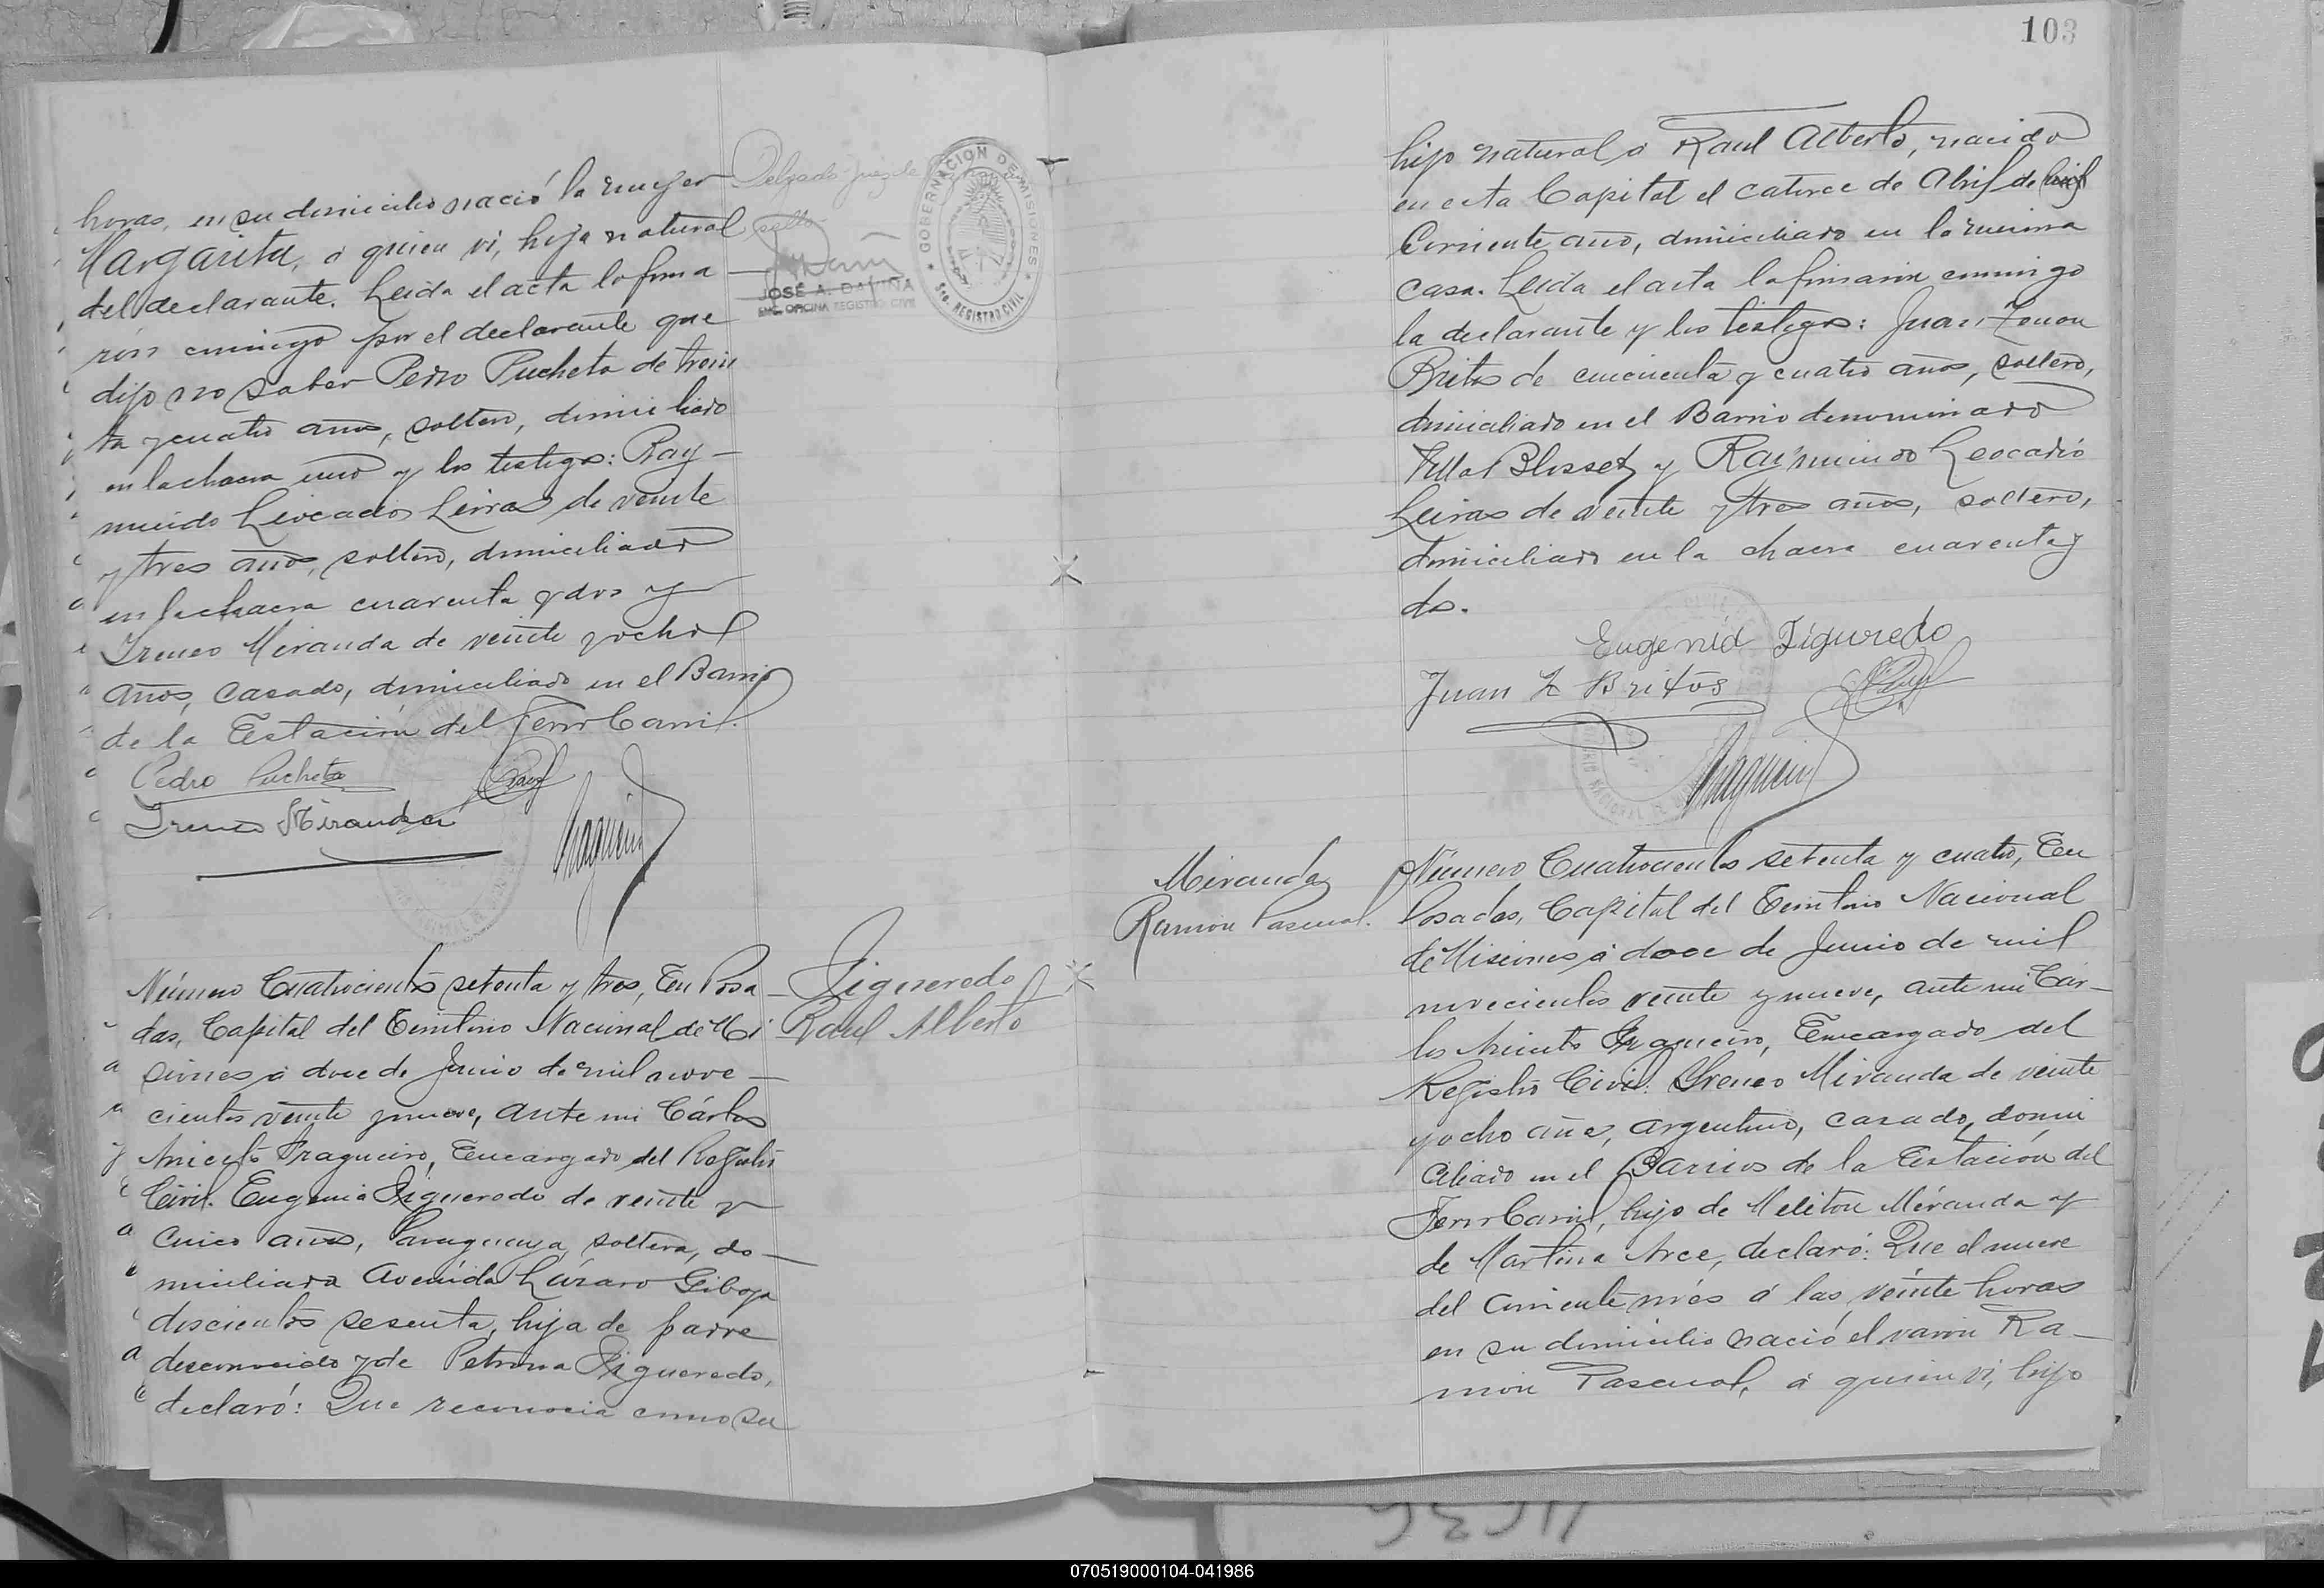 horas, en su domicilio nació la mujer
Margarita, á quien vi, hija natural
del declarante. Leida el acta la firma
rón conmigo por el declarante que
dijo no saber Pedro Pucheta de trein
ta y cuatro años, soltero, domiciliado
en la chacra uno y los testigos: Ray-
mundo Leocadio Leiras de veinte
y tres años, soltero, domiciliado
en la chacra cuarenta y dos y
Ireneo Miranda de veinte y ocho
años, casado, domiciliado en el Barrio
de la Estación del Ferro Carril.
Pedro Pucheta
Ireneo Miranda
Fragueiro
Delgado Juez de
sello
JOSÉ A. DAVIÑA
ENC. OFICINA REGISTRO CIVIL
GOBERNACION DE MISIONES
REGISTRO CIVIL
Figueredo
Raul Alberto
Número Cuatrocientos setenta y tres, En Posa-
das, Capital del Territorio Nacional de Mi
siones á doce de Junio de mil nove-
cientos veinte y nueve, ante mi Cárlos
Aniceto Fragueiro, Encargado del Registro
Civil. Eugenia Figueredo de veinte y
cinco años, Paraguaya, soltera, do-
miciliada Avenida Lázaro Gibaja
doscientos sesenta, hija de padre
desconocido y de Petrona Figueredo,
declaró: Que reconocia como su
103
hijo natural á Raul Alberto, nacido
en esta Capital el catorce de Abril de
Corriente año, domiciliado en la misma
casa. Leida el acta la firmaron conmigo
la declarante y los testigos: Juan Zenon
Britos de cincuenta y cuatro años, soltero,
domiciliado en el Barrio denominado
Villa Blosset y Raimundo Leocadio
Leiras de veinte y tres años, soltero,
domiciliado en la chacra cuarenta y
dos.
Eugenia Figueredo
Juan Z Britos
Fragueiro
Miranda
Ramon Pascual.
Número Cuatrocientos setenta y cuatro, En
Posadas, Capital del Territorio Nacional
de Misiones á doce de Junio de mil
novecientos veinte y nueve, ante mi Cár-
los Aniceto Fragueiro, Encargado del
Registro Civil. Ireneo Miranda de veinte
y ocho años, argentino, casado, domi
ciliado en el Barrios de la Estación del
Ferro Carril, hijo de Meliton Miranda y
de Martina Arce, declaró: Que el nueve
del corriente més á las veinte horas
en su domicilio nació el varon Ra-
món Pascual, á quien vi, hijo
070519000104-041986